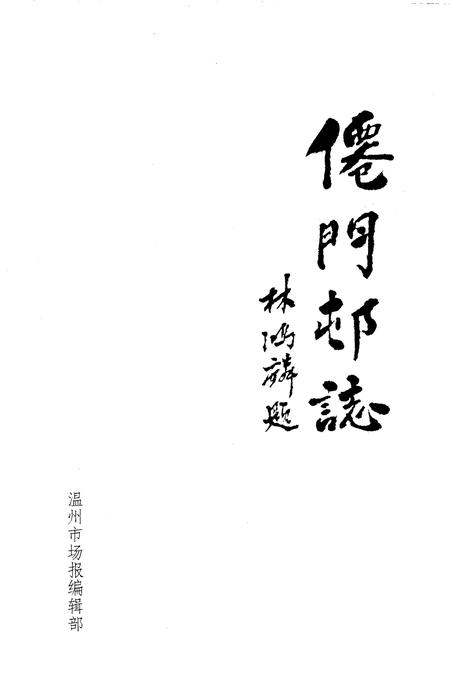 僊門邨誌
林鸿麟题
温州市场报编辑部